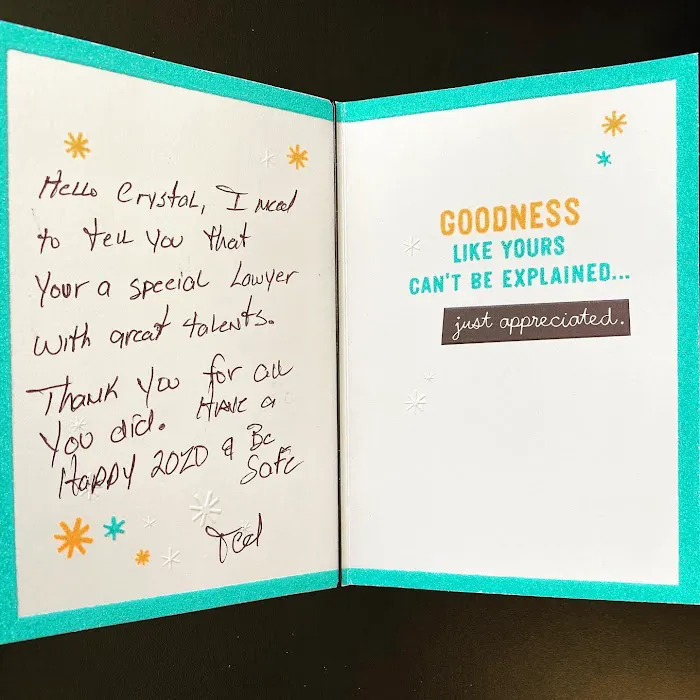 Hello Crystal, I need
to tell you that
Your a special Lawyer
with great talents.
Thank You for all
You did. Have a
Happy 2020 & Be
Safe
Ted
GOODNESS
LIKE YOURS
CAN'T BE EXPLAINED...
just appreciated.